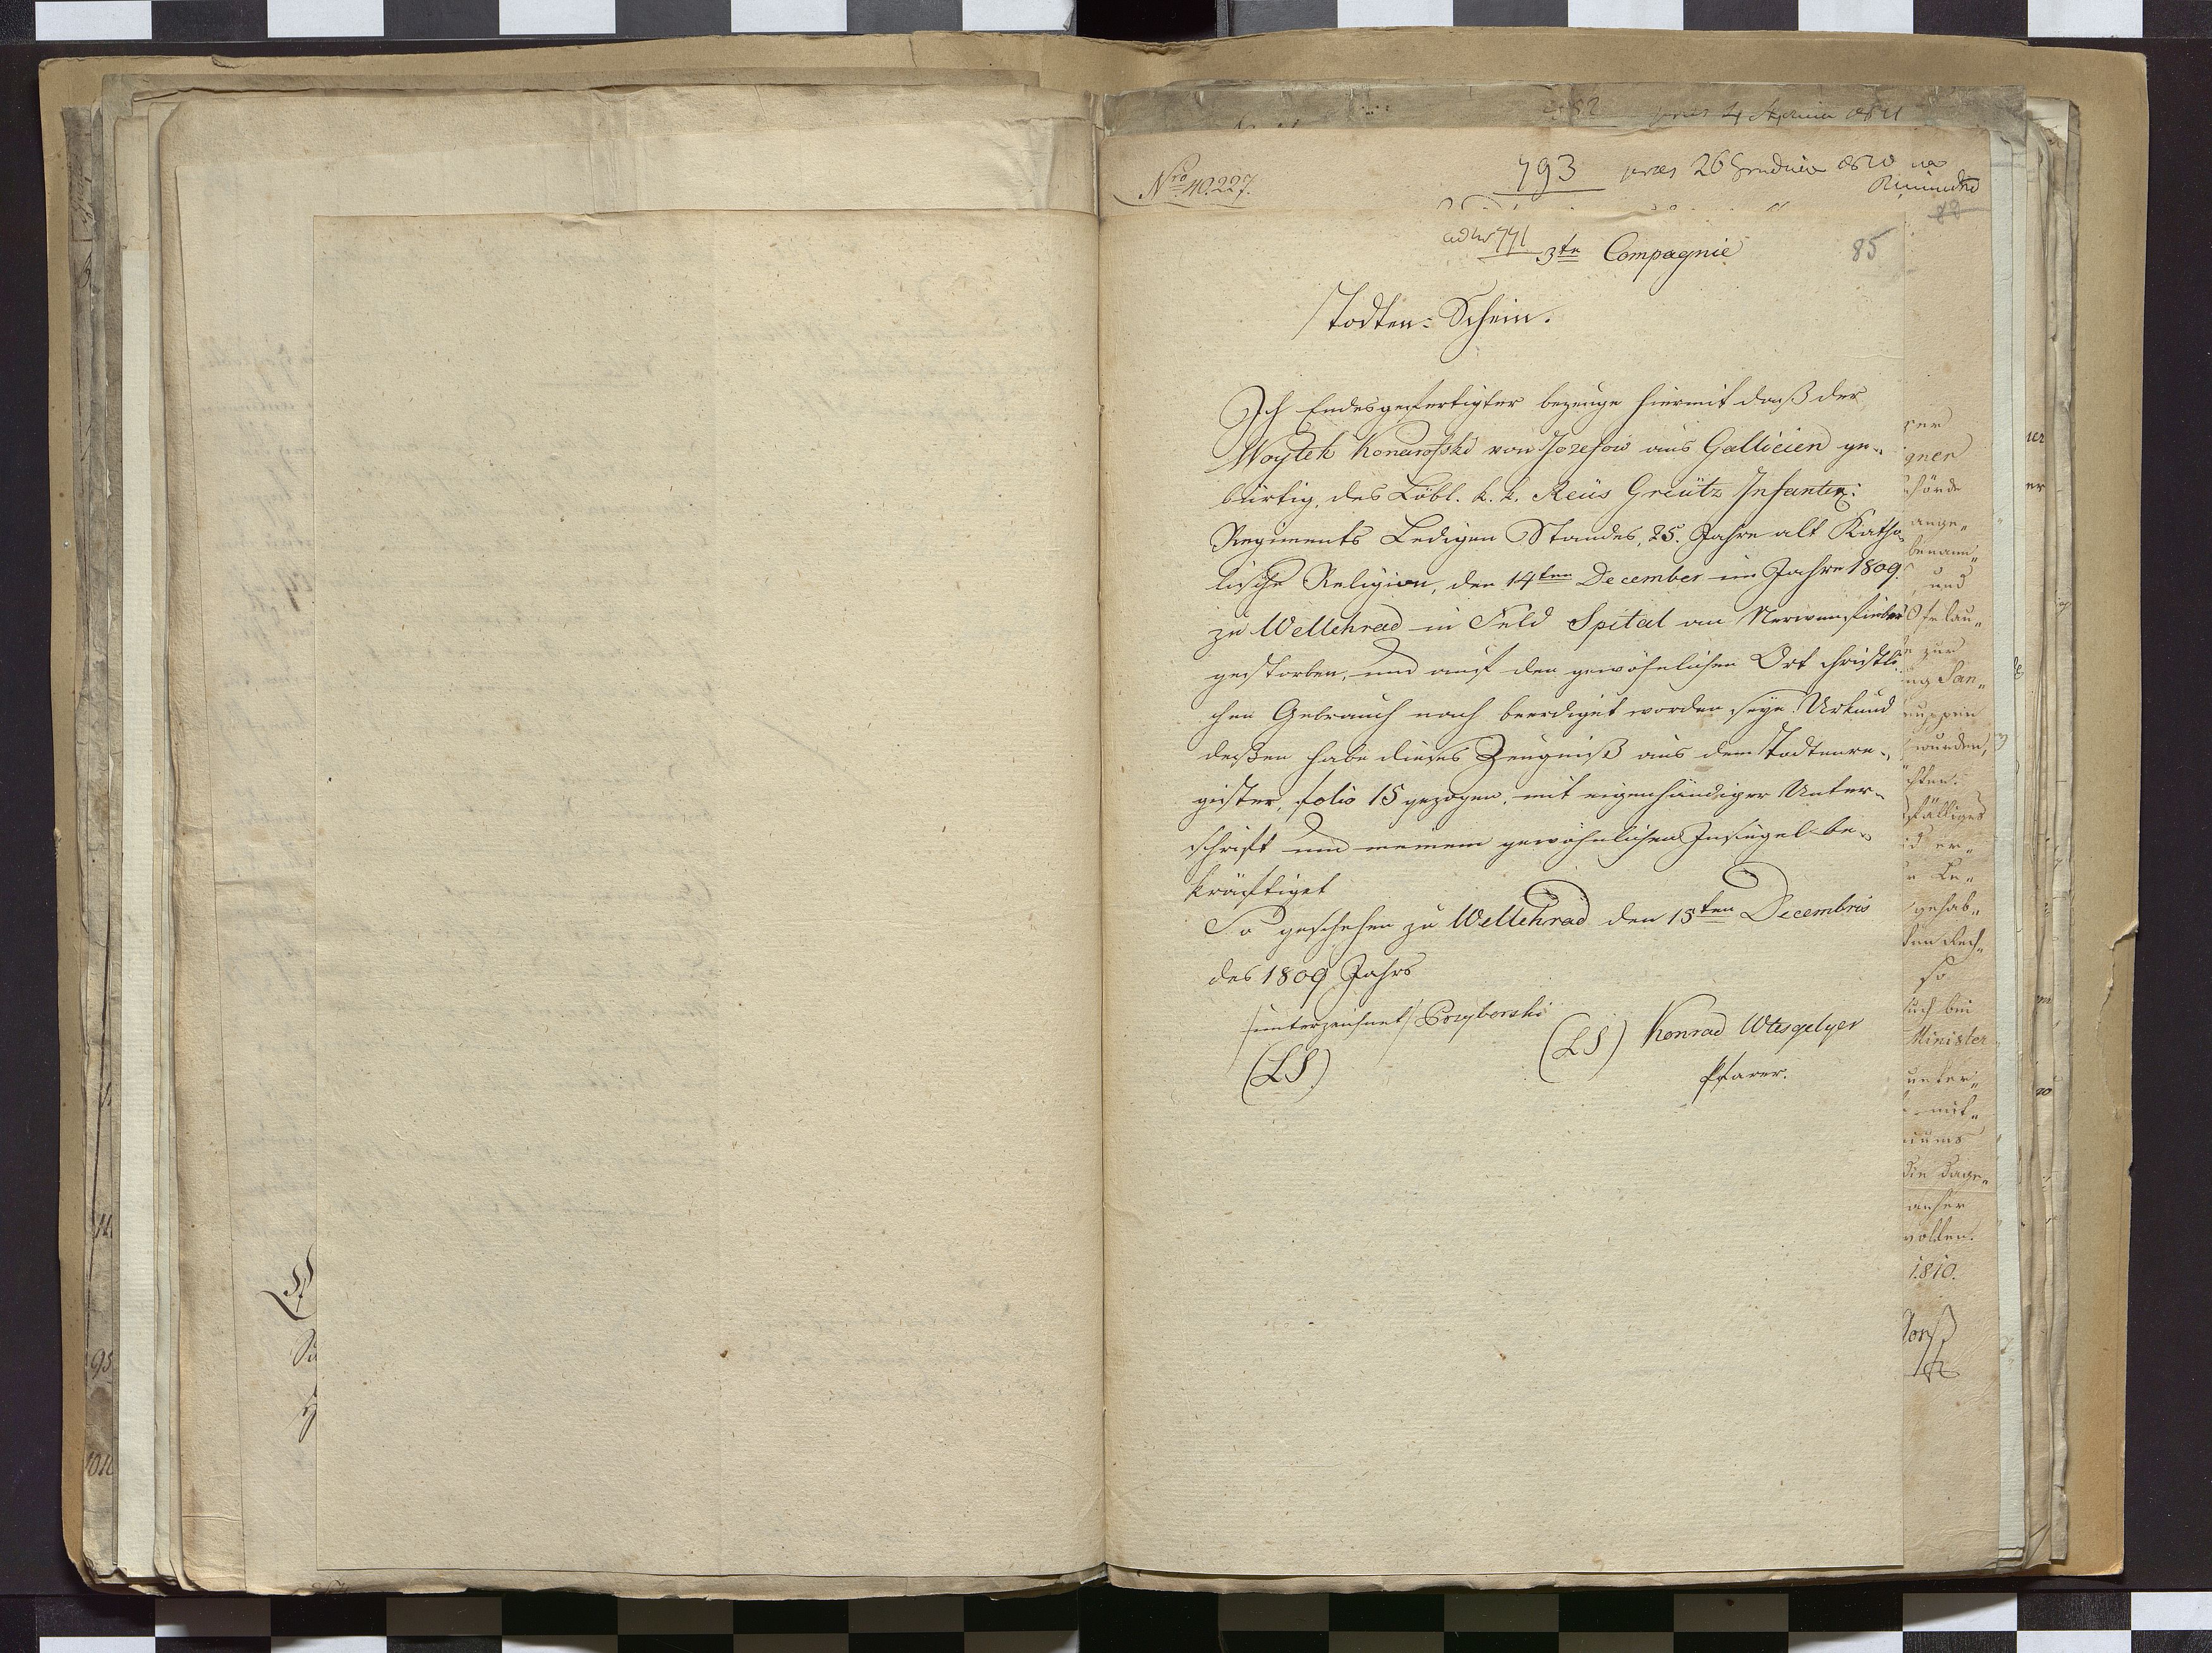 pres 4 Aprilis 1811
Nro 40.227.
793 pres 26 Grudnia 1810
88
ad nr 771
3te Compagnie
85
Todten-Schein.
Ich Endesgefertigter bezeuge hiermit daß der
Woytek Konarofski von Jozefow aus Gallicien ge-
bürtig, des Löbl. k. k. Reüs Greütz Infanter:
Regiments Ledigen Standes, 25. Jahre alt Katho-
lische Religion, den 14ten December im Jahre 1809
zu Wellehrad in Feld Spital an Nervenfieber
gestorben, und auf den gewöhnlichen Ort christli-
chen Gebrauch nach beerdiget worden seye. Urkund
deßen habe dieses Zeugniß aus dem Todtenre-
gister, folio 15 gezogen, mit eigenhändiger Unter-
schrift und meinem gewöhnlichen Insiegel be-
kräftiget
So geschehen zu Wellehrad den 15ten Decembris
des 1809 Jahrs
/unterzeichnet/ Pozyborski
(LS) Konrad
(LS)
Pfarer.
ange-
benann-
und
zur
wurden,
er-
gehab-
so
auch bei
Minister
unter-
mit-
anher
wollen.
1810.